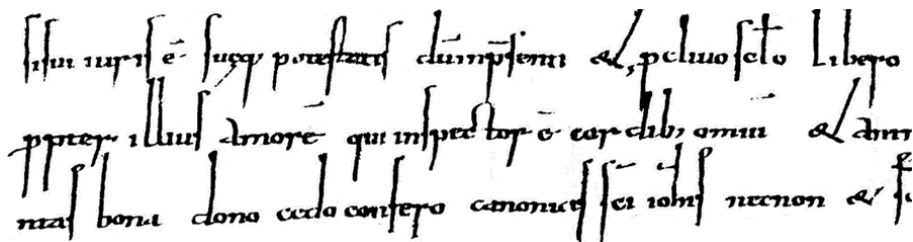 sisui iuris ē sueq potestatis dum psenti et pcluo sclo libero
ppter illius amorē qui inspector ē cordib; omiū et
mas bona dono cedo confero canonicis sci iohis necnon et